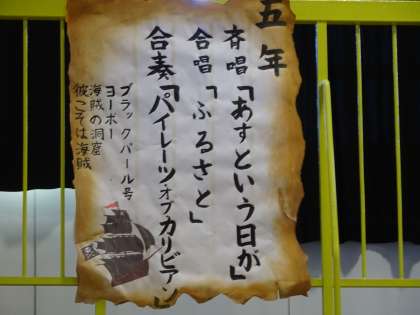 五年
斉唱「あすという日が」
合唱「ふるさと」
合奏「パイレーツ・オブ・カリビアン」
ブラックパール号
ヨーホー
海賊の洞窟
彼こそは海賊